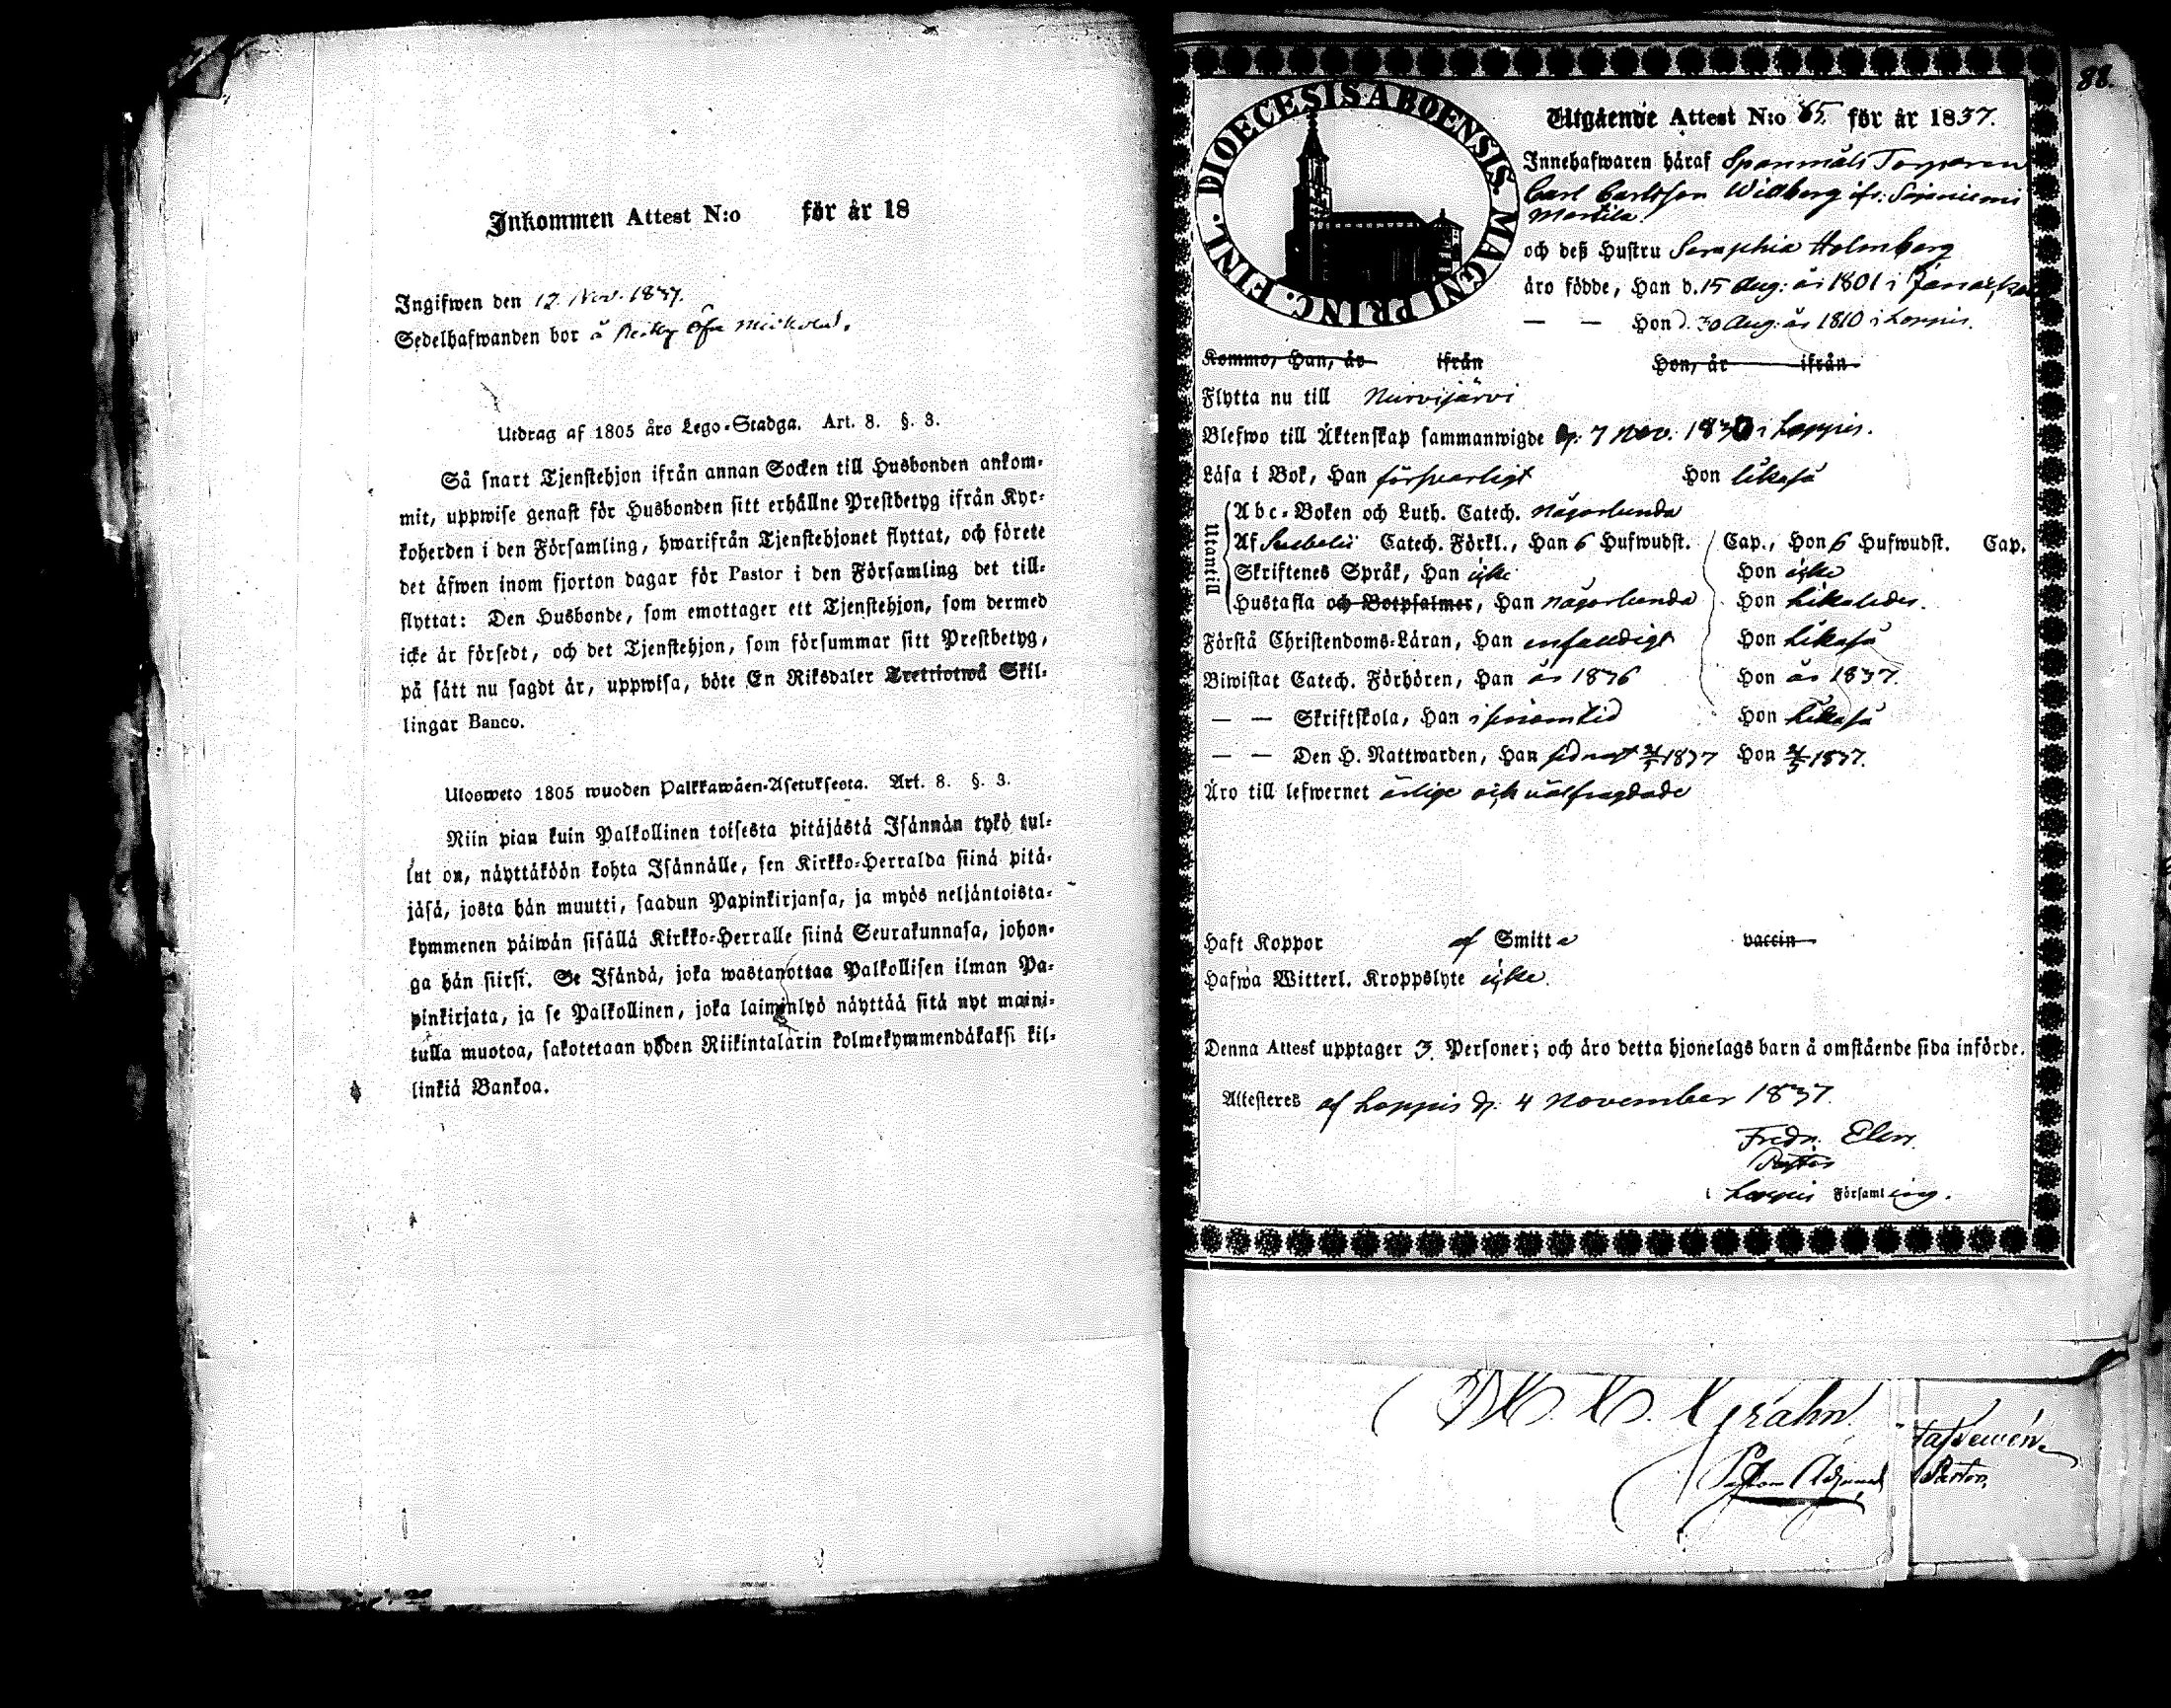 Inkommen Attest N:o för år 18
Ingifwen den 12 Nov. 1837.
Sedelhafwanden bor å
Utdrag af 1805 års Lego-Stadga. Art. 8. §. 3.
Så snart Tjenstehjon ifrån annan Socken till Husbonden ankom-
mit, uppwise genast för Husbonden sitt erhållne Prestbetyg ifrån Kyr-
koherden i den Församling, hwarifrån Tjenstehjonet flyttat, och förete
det äfwen inom fjorton dagar för Pastor i den Församling det till-
flyttat: Den Husbonde, som emottager ett Tjenstehjon, som dermed
icke är försedt, och det Tjenstehjon, som försummar sitt Prestbetyg,
på sätt nu sagdt är, uppwisa, böte En Riksdaler Trettiotwå Skil-
lingar Banco.
Ulosweto 1805 wuoden Palkkawäen-Asetuksesta. Art. 8. §. 3.
Niin pian kuin Palkollinen toisesta pitäjästä Isännän tykö tul-
lut on, näyttäköön kohta Isännälle, sen Kirkko-Herralda siinä pitä-
jäsä, josta hän muutti, saadun Papinkirjansa, ja myös neljäntoista-
kymmenen päiwän sisällä Kirkko-Herralle siinä Seurakunnasa, johon-
ga hän siirsi. Se Isändä, joka wastanottaa Palkollisen ilman Pa-
pinkirjata, ja se Palkollinen, joka laiminlyö näyttää sitä nyt maini-
tulla muotoa, sakotetaan yhden Riikintalarin kolmekymmendäkaksi kil-
linkiä Bankoa.
88.
DIOECESIS ABOENSIS. MAGNI PRINC. FINL.
Utgående Attest N:o 65 för år 1837.
Innehafwaren häraf Spanmåls Torparen
Carl Carlsson Willberg ifr: Sajaniemi
Martila
och deß Hustru Seraphia Holmberg
äro födde, Han d. 15 Aug: år 1801 i Janakkala
— — Hon d. 30 Aug: år 1810 i Loppis.
Kommo, Han, år ifrån Hon, år ifrån
Flytta nu till Nurmijärvi
Blefwo till Äktenskap sammanwigde d. 7 Nov. 1830 i Loppis.
Läsa i Bok, Han försvarligt Hon likaså
Utantill
Abc-Boken och Luth. Catech. någorlunda
Af Svebelii Catech. Förkl., Han 6 Hufwudst. Cap., Hon 6 Hufwudst. Cap.
Skriftenes Språk, Han icke Hon icke
Hustafla och Botpsalmer, Han någorlunda Hon likaledes.
Förstå Christendoms-Läran, Han enfaldigt Hon likaså
Biwistat Catech. Förhören, Han år 1836 Hon år 1837.
— — Skriftskola, Han i sinom tid Hon likaså
— — Den H. Nattwarden, Han sednast 1837 Hon 1837.
Äro till lefwernet ärlige och välfragdade
Haft Koppor af Smitta vaccin
Hafwa Witterl. Kroppslyte icke.
Denna Attest upptager 3. Personer; och äro detta hjonelags barn å omstående sida införde.
Attesteres af Loppis d. 4 November 1837.
Fredr. Elers
Pastor
i Loppis Församling.
Grahn.
Pastors Adjunct
Pastor.